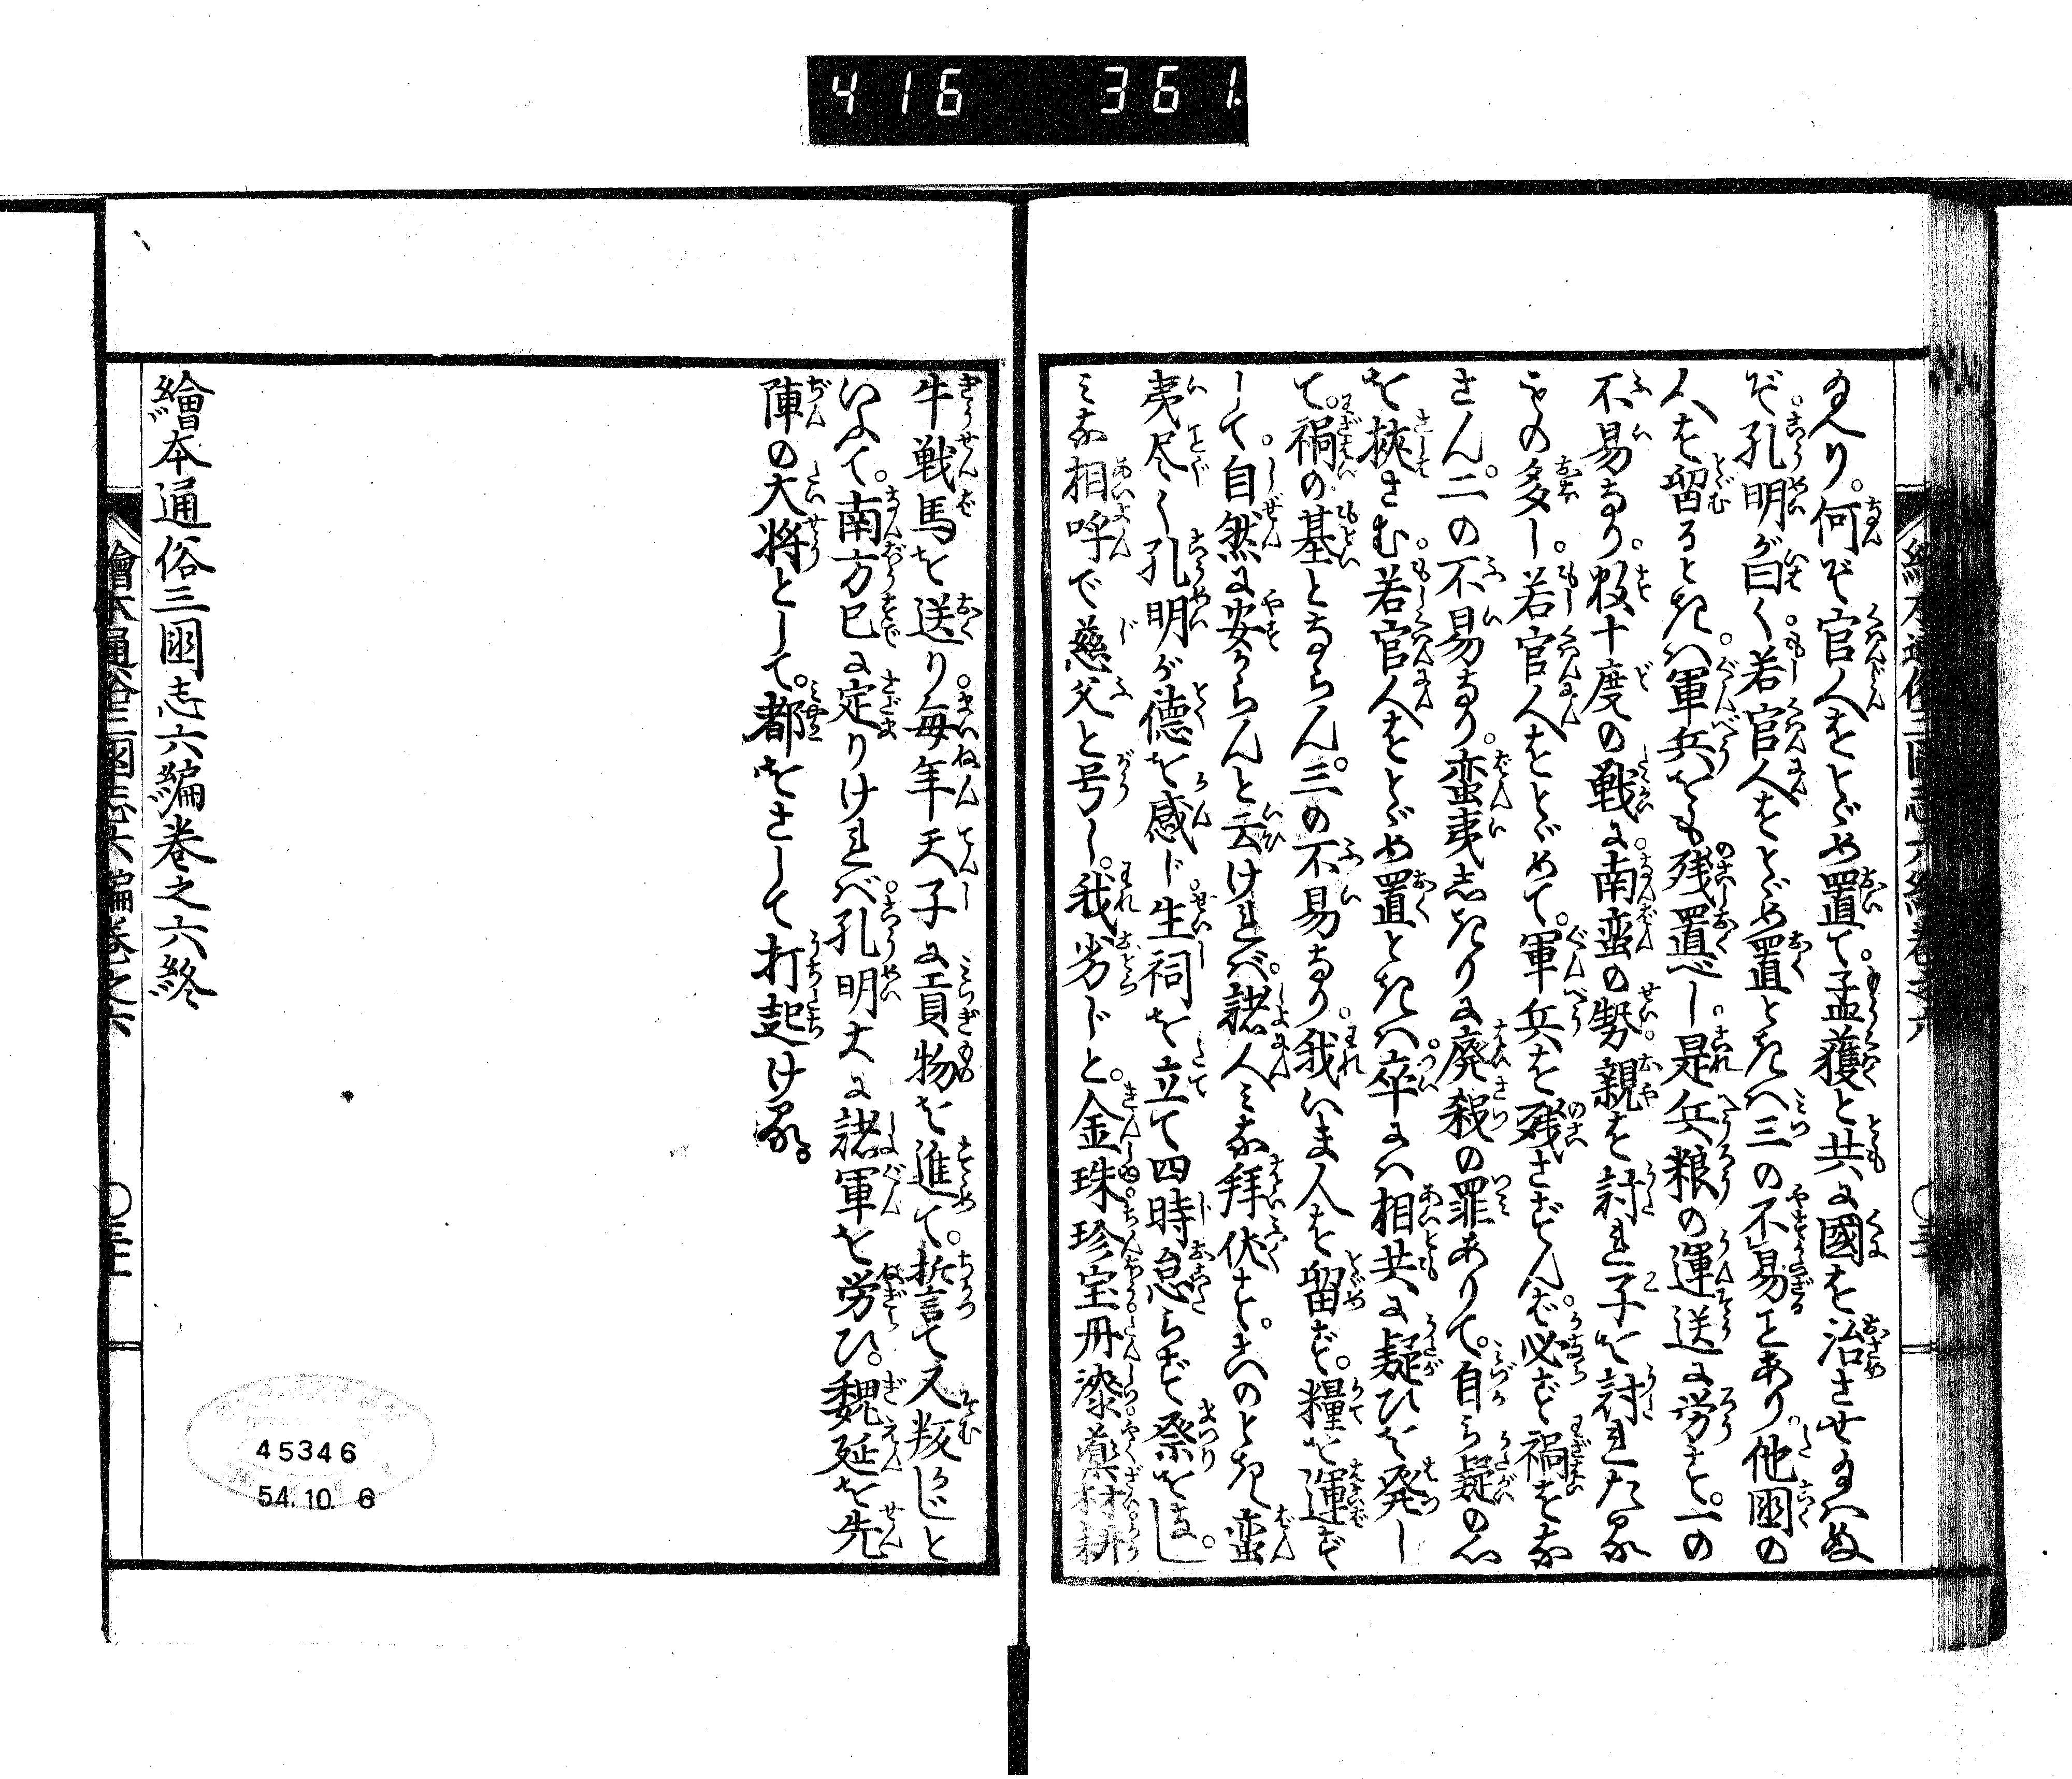 416 361
給へり。何ぞ官人をとゞめ置て。孟獲と共に國を治させ給はぬ
ぞ。孔明が曰く。若官人をとゞめ置ときハ三の不易ことあり。他國の
人を留るときハ。軍兵をも残置べし。是兵粮の運送に労す。一の
不易なり。数十度の戦に。南蛮の勢。親を討れ子を討れたる
もの多し。若官人をとゞめて。軍兵を残さずんば。必ず禍をな
さん。二の不易なり。蛮夷しきりに廃殺の罪ありて。自ら疑の心
を挾さむ。若官人をとゞめ置ときハ。卒にハ相共に疑ひを発し
て。禍の基とならん。三の不易なり。我いま人を留ず。糧を運ず
して。自然に安からんと云けれバ。諸人ミな拜伏す。このとき蛮
夷尽く孔明が徳を感じ。生祠を立て四時怠らず祭をなし。
ミな相呼で慈父と号し。我劣じと。金珠。珍宝。丹漆。薬材。耕
牛戦馬を送り。毎年天子に貢物を進て。誓て又叛かじと
いふて。南方已に定りけれバ。孔明大に諸軍を労ひ。魏延を先
陣の大将として。都をさして打起ける。
繪本通俗三國志六編巻之六終
繪本通俗三國志六編巻之六
45346
54.10.6